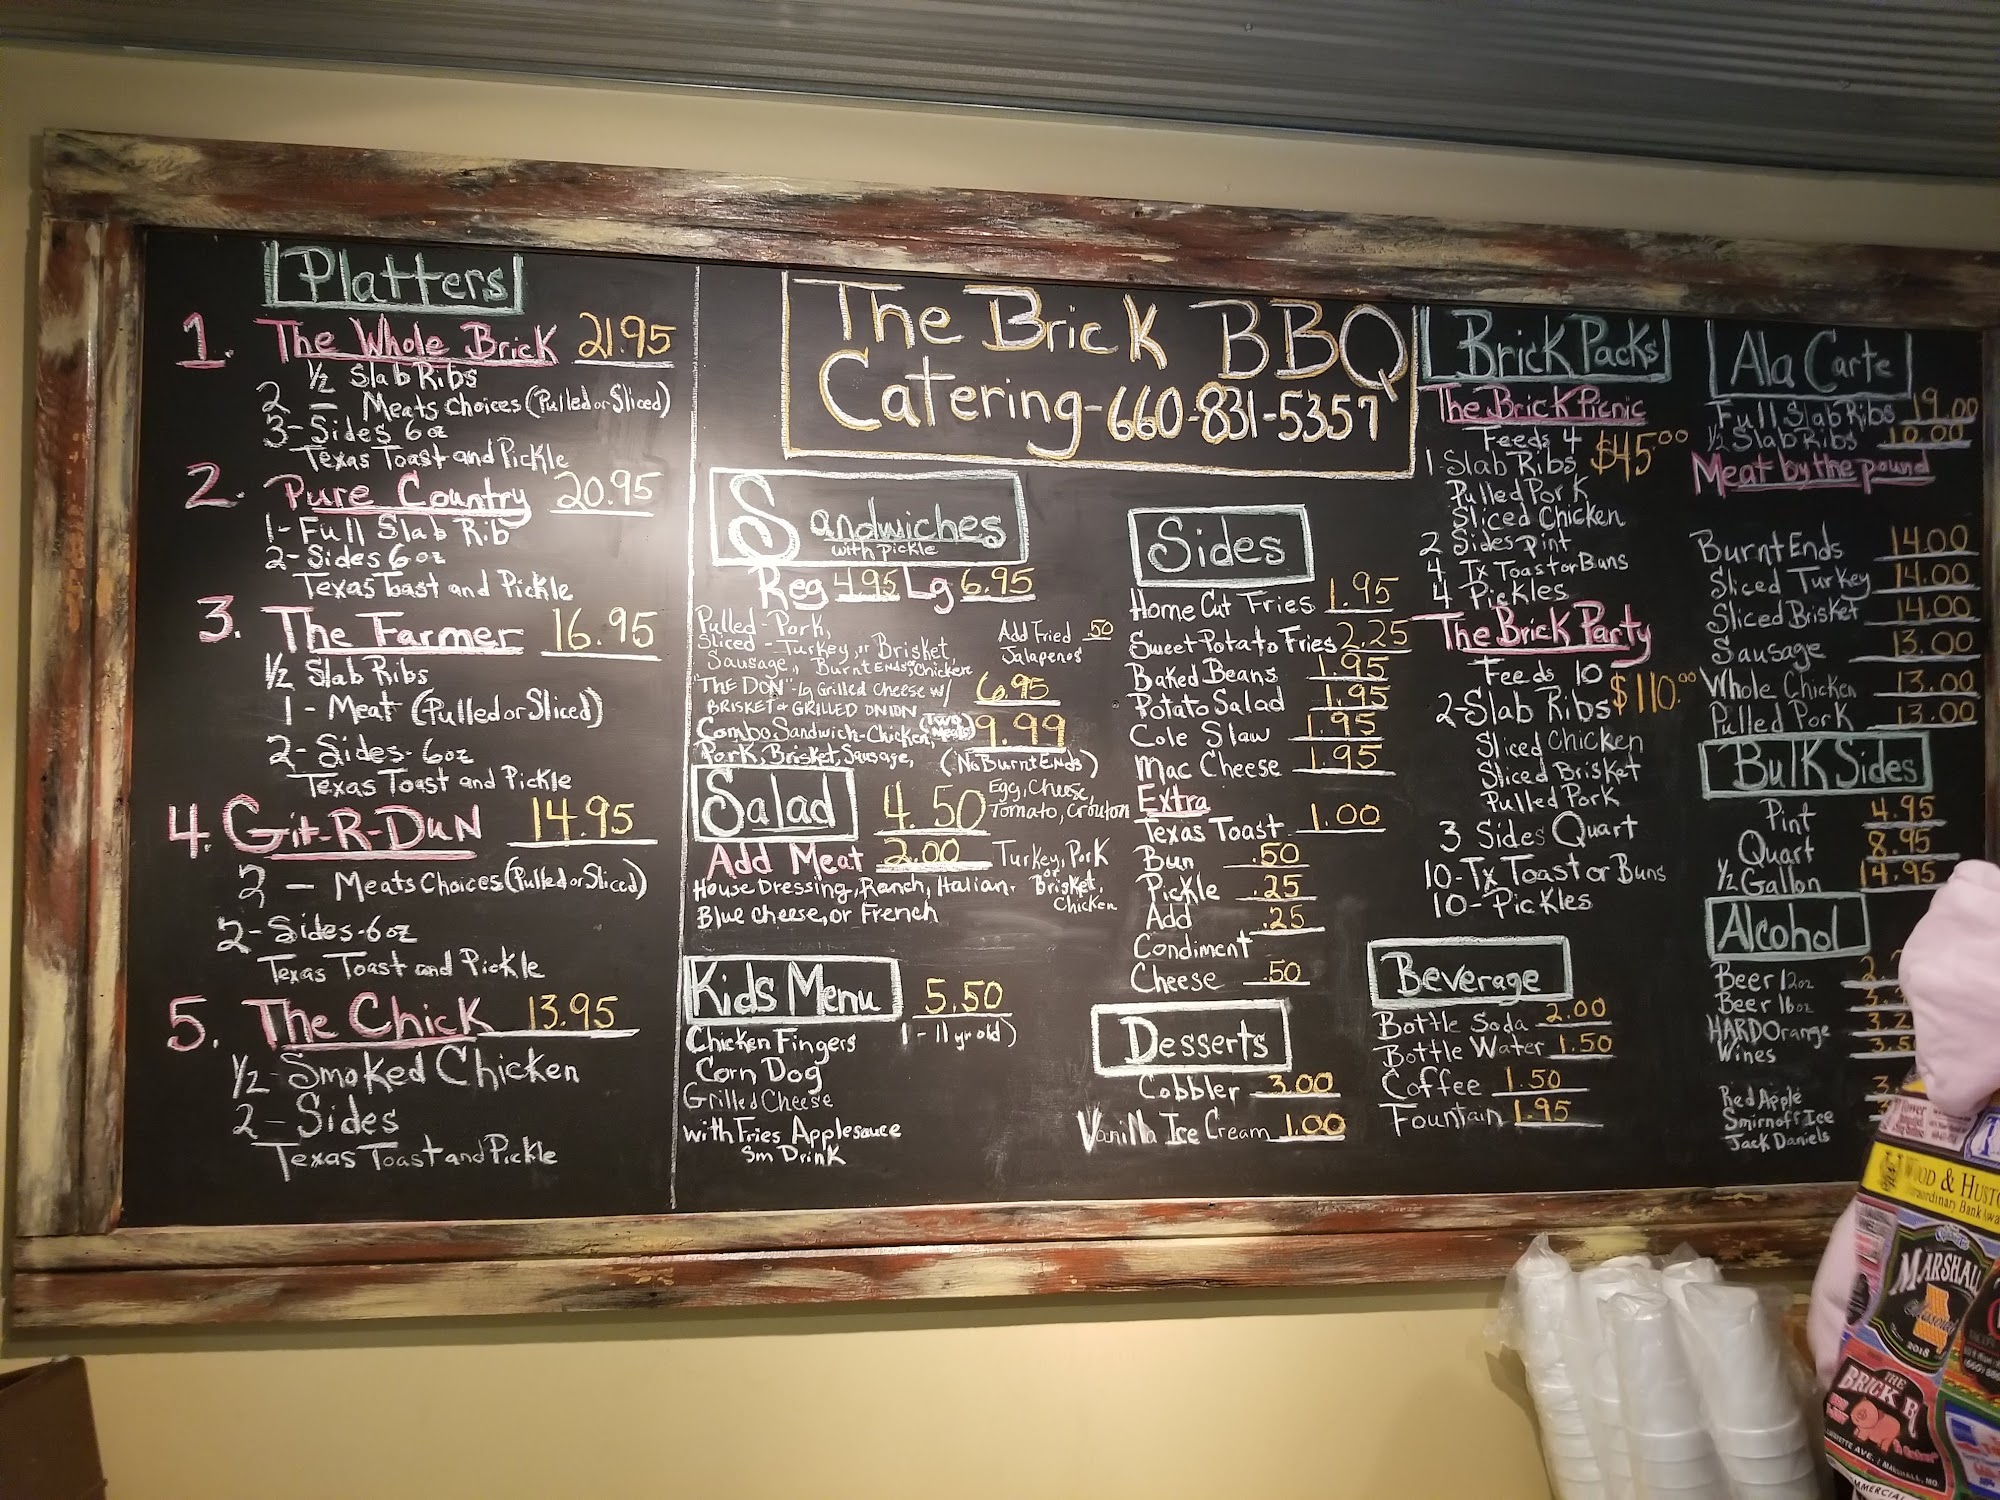 Platters
1. The Whole Brick 21.95
½ Slab Ribs
2 - Meats Choices (Pulled or Sliced)
3- Sides 6oz
Texas Toast and Pickle
2. Pure Country 20.95
1- Full Slab Rib
2- Sides 6oz
Texas Toast and Pickle
3. The Farmer 16.95
½ Slab Ribs
1 - Meat (Pulled or Sliced)
2- Sides- 6oz
Texas Toast and Pickle
4. Git-R-Dun 14.95
2 - Meats Choices (Pulled or Sliced)
2- Sides-6oz
Texas Toast and Pickle
5. The Chick 13.95
½ Smoked Chicken
2- Sides
Texas Toast and Pickle
The Brick BBQ
Catering-660-831-5357
Sandwiches
with pickle
Reg 4.95 Lg 6.95
Pulled - Pork,
Sliced - Turkey, or Brisket,
Sausage, Burnt Ends, or Chicken
Add Fried .50
Jalapenos
"THE DON"-Lg Grilled Cheese w/ 6.95
BRISKET & GRILLED ONION
Combo Sandwich-Chicken, (Two Meats) 9.99
Pork, Brisket, Sausage, (No Burnt Ends)
Salad 4.50 Egg, Cheese,
Tomato, Crouton
Add Meat 2.00 Turkey, Pork
or Brisket,
Chicken
House Dressing, Ranch, Italian.
Blue Cheese, or French
Kids Menu 5.50
1 - 11 yr old)
Chicken Fingers
Corn Dog
Grilled Cheese
with Fries, Applesauce
Sm Drink
Sides
Home Cut Fries 1.95
Sweet Potato Fries 2.25
Baked Beans 1.95
Potato Salad 1.95
Cole Slaw 1.95
Mac Cheese 1.95
Extra
Texas Toast 1.00
Bun .50
Pickle .25
Add .25
Condiment
Cheese .50
Desserts
Cobbler 3.00
Vanilla Ice Cream 1.00
Brick Packs
The Brick Picnic
Feeds 4 $45.00
1-Slab Ribs
Pulled Pork
Sliced Chicken
2 Sides pint
4 Tx Toast or Buns
4 Pickles
The Brick Party
Feeds 10 $110.00
2-Slab Ribs
Sliced Chicken
Sliced Brisket
Pulled Pork
3 Sides Quart
10-Tx Toast or Buns
10-Pickles
Beverage
Bottle Soda 2.00
Bottle Water 1.50
Coffee 1.50
Fountain 1.95
Ala Carte
Full Slab Ribs 19.00
½ Slab Ribs 10.00
Meat by the pound
Burnt Ends 14.00
Sliced Turkey 14.00
Sliced Brisket 14.00
Sausage 13.00
Whole Chicken 13.00
Pulled Pork 13.00
Bulk Sides
Pint 4.95
Quart 8.95
½ Gallon 14.95
Alcohol
Beer 12oz
Beer 16oz
HARD Orange
Wines
Red Apple
Smirnoff Ice
Jack Daniels
MARSHAL
2018
THE
BRICK B